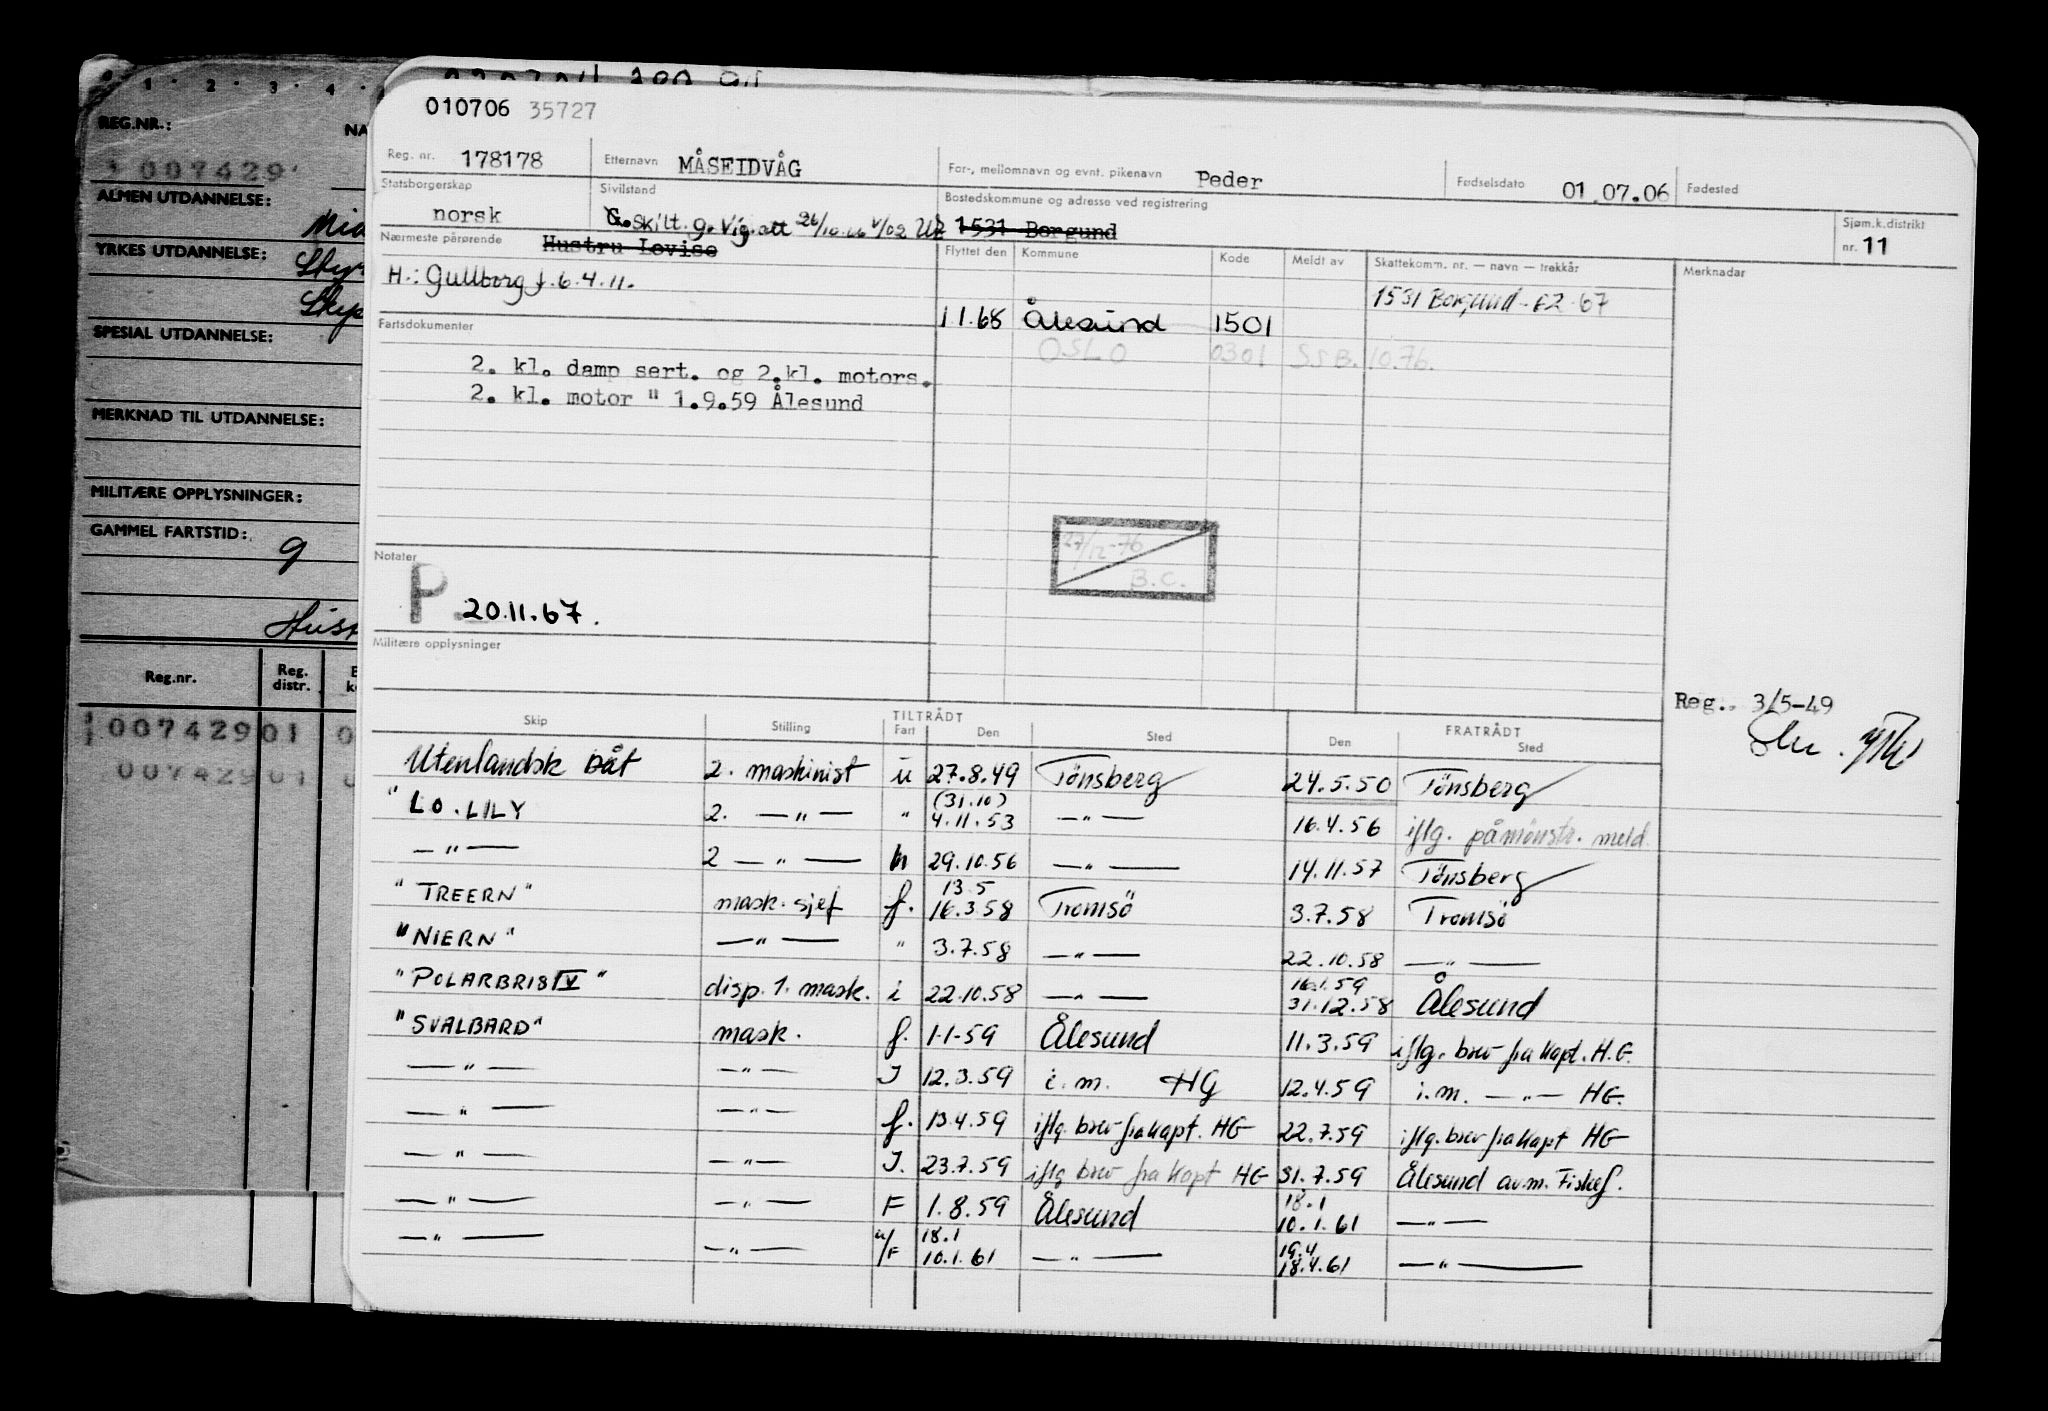 1 · 2 · 3 · 4
REG.NR.:
007429
ALMEN UTDANNELSE:
YRKES UTDANNELSE:
SPESIAL UTDANNELSE:
MERKNAD TIL UTDANNELSE:
MILITÆRE OPPLYSNINGER:
GAMMEL FARTSTID: 9
Reg.nr. Reg. distr.
00742901 0
00742901
010706 35727
Reg. nr. 178178 Etternavn MÅSEIDVÅG For-, mellomnavn og evnt. pikenavn Peder Fødselsdato 01.07.06 Fødested
Statsborgerskap norsk Sivilstand G. skilt. g. Vig.att 26/10.66 Bostedskommune og adresse ved registrering 1531 Borgund Sjøm.k.distrikt nr. 11
Nærmeste pårørende Hustru Lovise
H.: Gullborg f. 6.4.11.
Flyttet den Kommune Kode Meldt av Skattekomm. nr. — navn — trekkår Merknadar
1531 Borgund - F2 - 67
1 1.68 Ålesund 1501
OSLO 0301 SSB. 10.76.
Fartsdokumenter
2. kl. damp sert. og 2.kl. motors.
2. kl. motor " 1.9.59 Ålesund
27/12-76
B.C.
Notater
P. 20.11.67.
Militære opplysninger
Reg.. 3/5-49
Skip Stilling TILTRÅDT Fart Den Sted FRATRÅDT Den Sted
Utenlandsk båt 2. maskinist u 27.8.49 Tönsberg 24.5.50 Tönsberg
"LO.LILY 2. — " — " (31.10) 4.11.53 — " — 16.4.56 iflg. påmönstr. meld.
— " — 2 — " — 29.10.56 — " — 14.11.57 Tönsberg
"TREERN" mask. sjef f. 13.5 16.3.58 Tromsö 3.7.58 Tromsö
"NIERN" — " — " 3.7.58 — " — 22.10.58 — " —
"POLARBRIS IV" disp. 1. mask. i 22.10.58 — " — 16.1.59 31.12.58 Ålesund
"SVALBARD" mask. f. 1-1-59 Ålesund 11.3.59 iflg. brev fra Kapt. H.G.
— " — — " — I 12.3.59 i.m. HG 12.4.59 i.m. — " — HG.
— " — — " — f. 13.4.59 iflg. brev fra kapt. HG 22.7.59 iflg. brev fra Kapt HG
— " — — " — I. 23.7.59 iflg brev fra Kapt HG 31.7.59 Ålesund av.m. Fiskef.
— " — — " — F 1.8.59 Ålesund 18.1 10.1.61 — " —
— " — — " — u/F 18.1 10.1.61 — " — 19.4 18.4.61 — " —